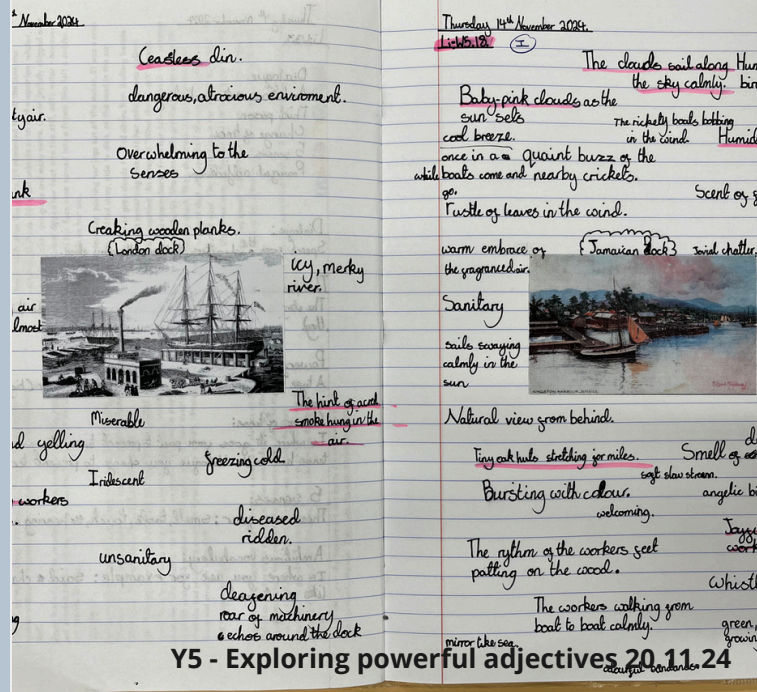 November 2024
Ceasless din.
dangerous, atrocious enviroment.
ty air.
Overwhelming to the
senses
nk
Creaking wooden planks.
London dock
Icy, merky
river.
air
lmost
The hint of acrid
smoke hung in the
air.
Miserable
d yelling
freezing cold.
Iridescent
workers
diseased
ridden.
unsanitary
deafening
roar of machinery
echos around the dock
Thursday 14th November 2024.
Li:W5.18 I
The clouds sail along
the sky calmly.
Hum
bir
Baby-pink clouds as the
sun sets
The rickety boats bobbing
in the wind.
Humid
cool breeze.
once in a quaint buzz of the
while boats come and nearby crickets.
go.
Scent of
rustle of leaves in the wind.
warm embrace of
the fragranced air.
Jamaican dock
Jovial chatter.
Sanitary
sails swaying
calmly in the
sun
Natural view from behind.
Tiny oak huts stretching for miles.
Smell of
soft slow stream.
Bursting with colour.
angelic bi
welcoming.
The rythm of the workers feet
patting on the wood.
whist
The workers walking from
boat to boat calmly.
green,
growin
mirror like sea.
Y5 - Exploring powerful adjectives 20 11 24